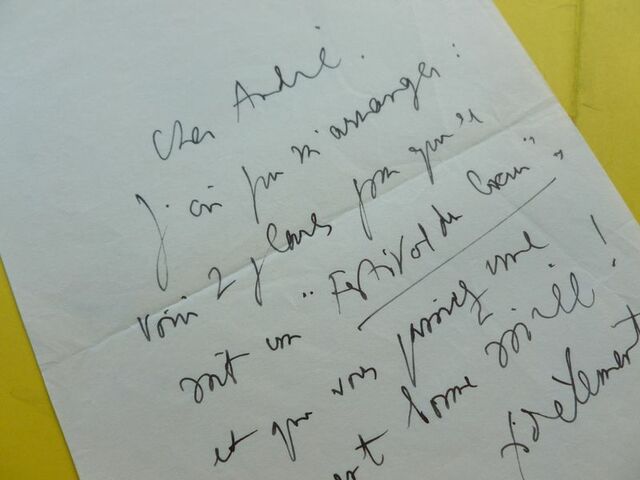 Cher André.
J'ai pu m'arranger :
voici 2 places pour que ce
soit un "Festival du Coeur"
et que vous passiez une
bonne soirée !
fidèlement